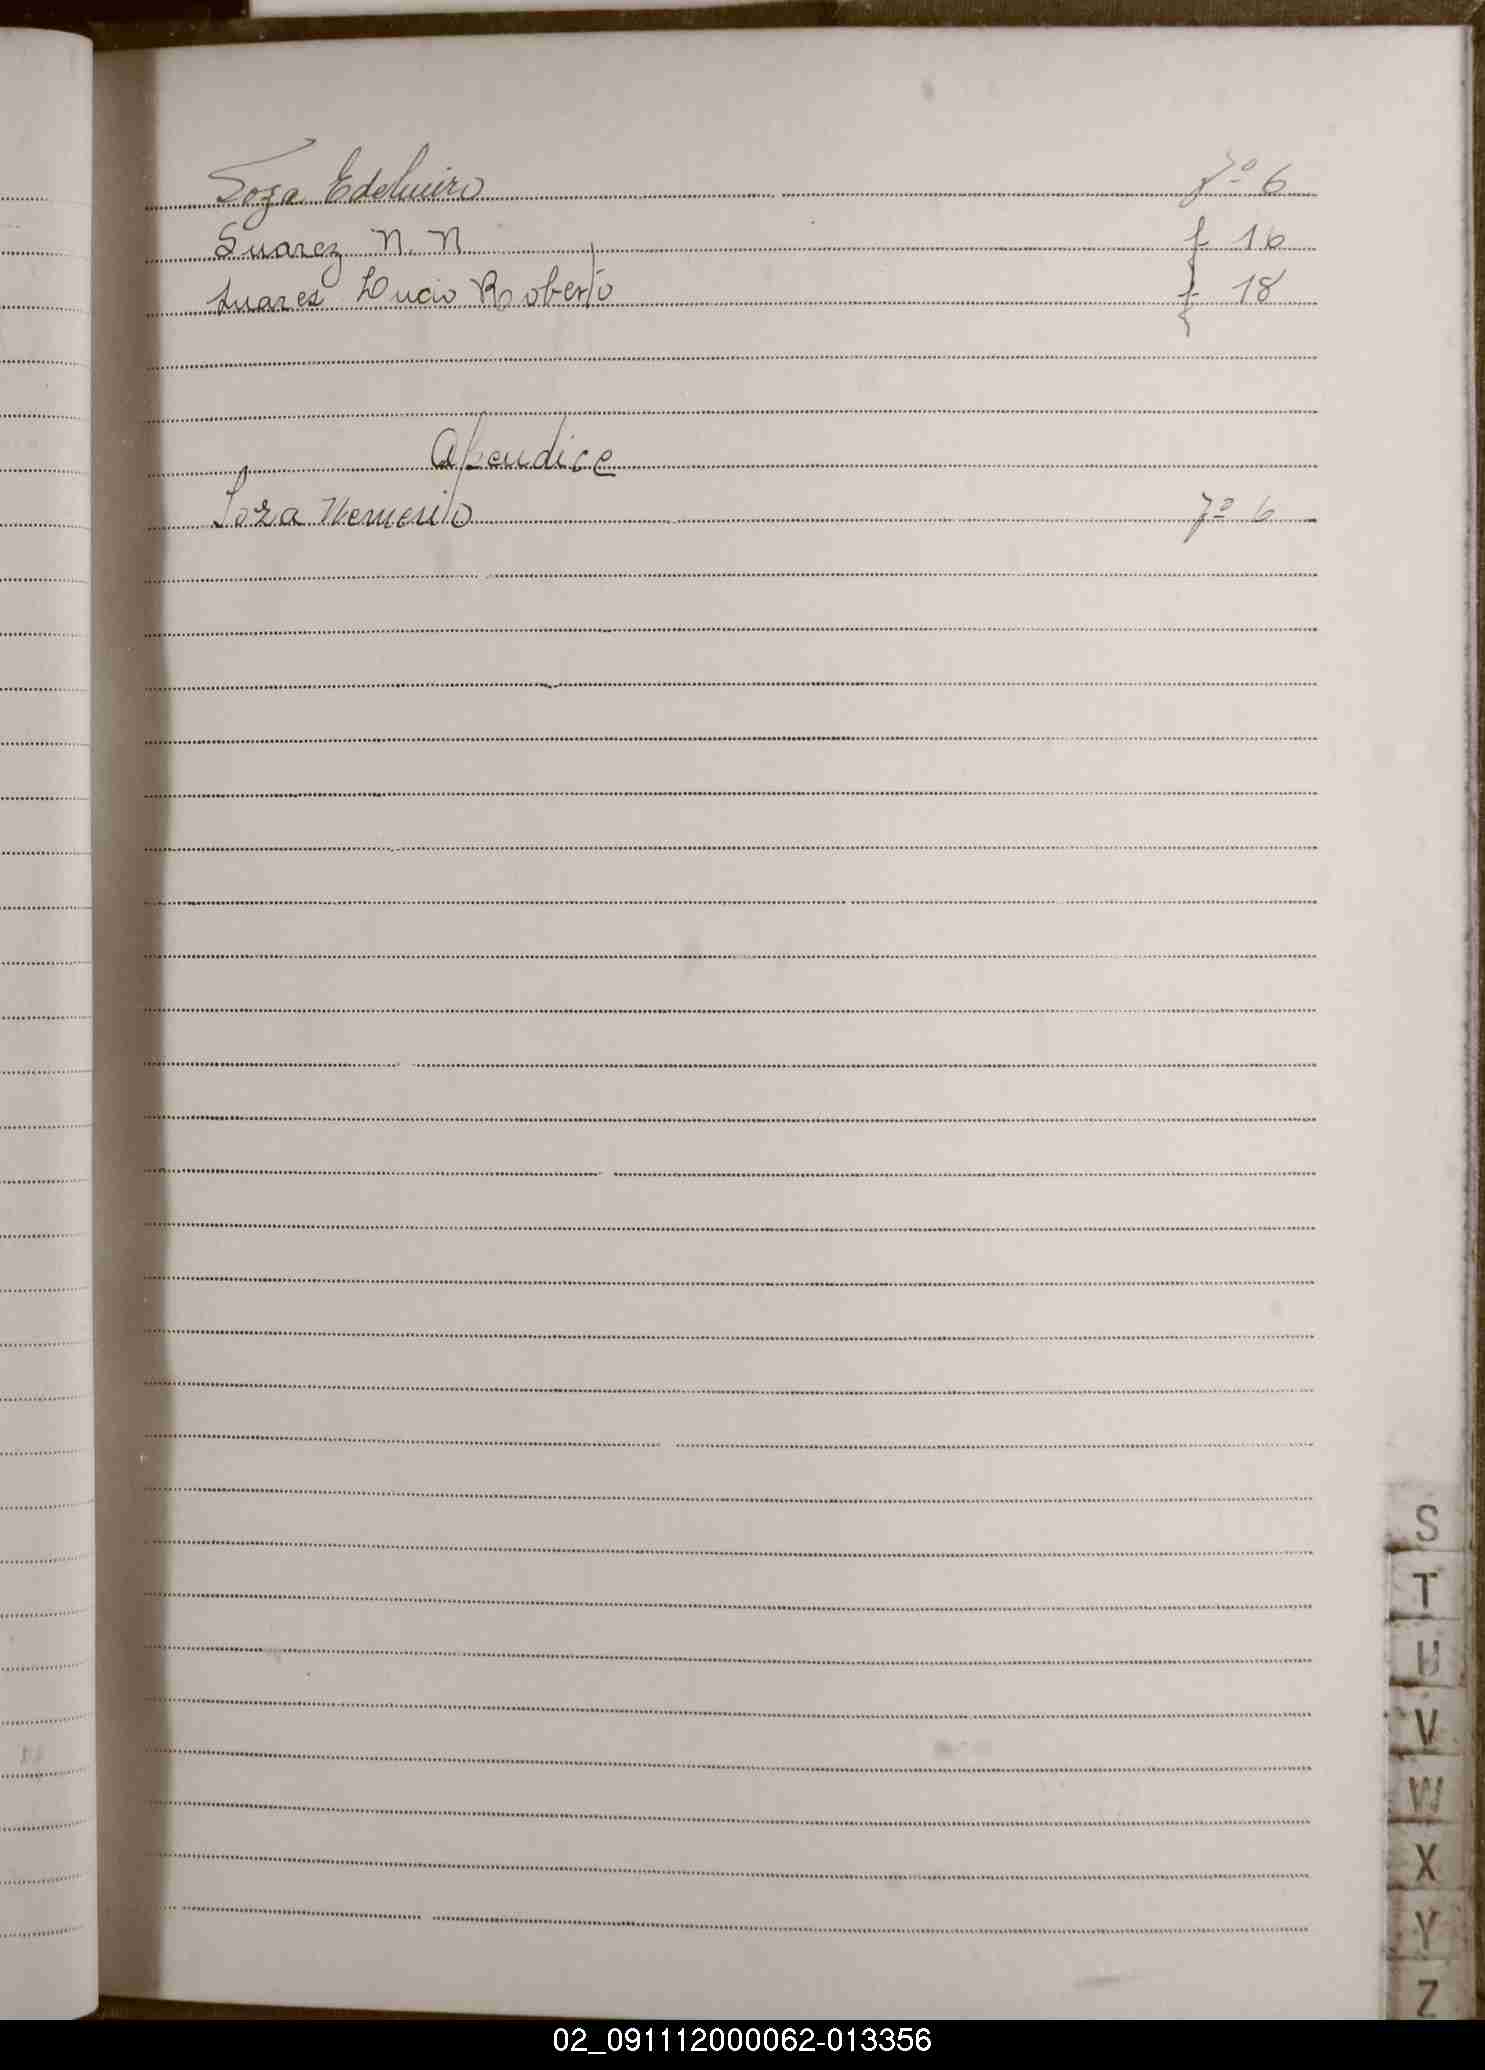 Soza Edelmiro fº 6
Suarez N. N f 16
Suares Lucio Roberto f 18
Apendice
Soza Nemerio fº 6
S
T
U
V
W
X
Y
Z
02_091112000062-013356